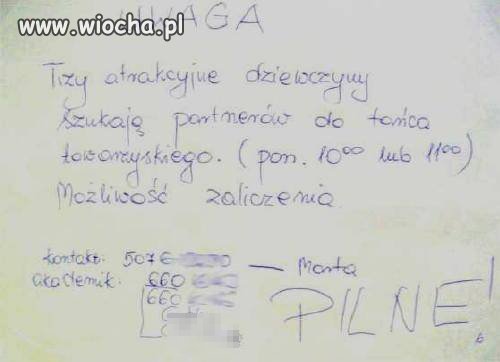 www.wiocha.pl
UWAGA
Trzy atrakcyjne dziewczyny
szukają partnerów do tańca
towarzyskiego. (pon. 10⁰⁰ lub 11⁰⁰)
Możliwość zaliczenia.
kontakt: 507 — Marta
akademik: 660
660
PILNE!